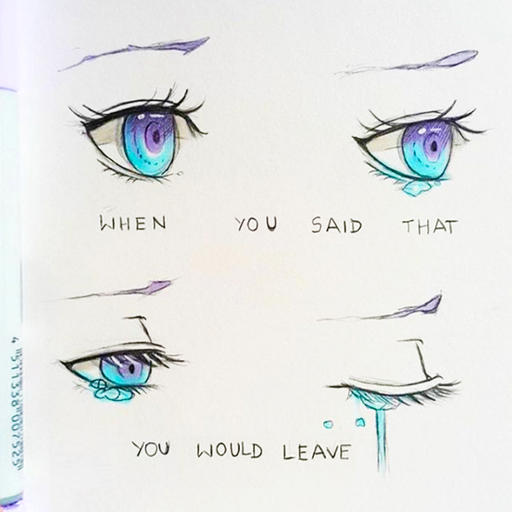 WHEN YOU SAID THAT
YOU WOULD LEAVE
4 511338 007525